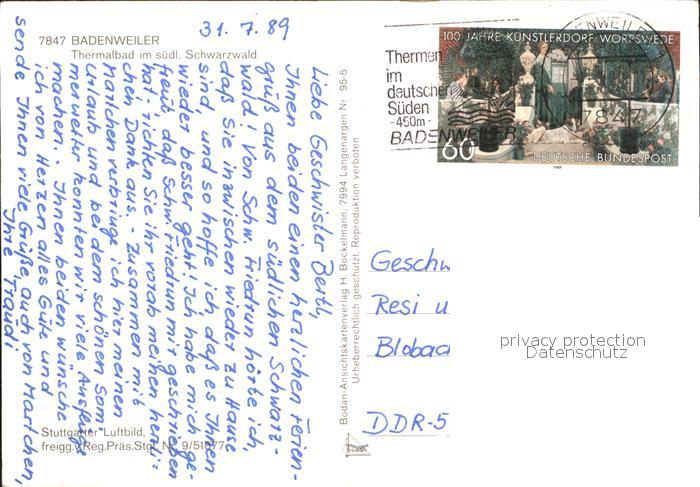 31.7.89
7847 BADENWEILER
Thermalbad im südl. Schwarzwald
Liebe Geschwister Berth,
Ihnen beiden einen herzlichen Ferien-
gruß aus dem südlichen Schwarz-
wald! Von Schw. Friedrun hörte ich,
daß Sie inzwischen wieder zu Hause
sind, und so hoffe ich, daß es Ihnen
wieder besser geht! Ich habe mich ge-
freut, daß Schw. Friedrun mir geschrieben
hat; richten Sie ihr vorab meinen herzli-
chen Dank aus. - Zusammen mit
Martchen verbringe ich hier meinen
Urlaub und bei dem schönen Som-
merwetter konnten wir viele Ausflüge
machen. Ihnen beiden wünsche
ich von Herzen alles Gute und
sende Ihnen viele Grüße, auch von Martchen,
Ihre Traudi
Stuttgarter Luftbild,
freigg. Reg.Präs.Stgt. Nr. 9/51877
Bodan-Ansichtskartenverlag H. Bockelmann, 7994 Langenargen Nr. 95-5
Urheberrechtlich geschützt. Reproduktion verboten
bodan
Thermen
im
deutschen
Süden
-450m-
BADENWEILER
BADENWEILER
7847
100 JAHRE KÜNSTLERDORF WORPSWEDE
60
DEUTSCHE BUNDESPOST
1989
Geschw
Resi u
Blobach
DDR-5
privacy protection
Datenschutz